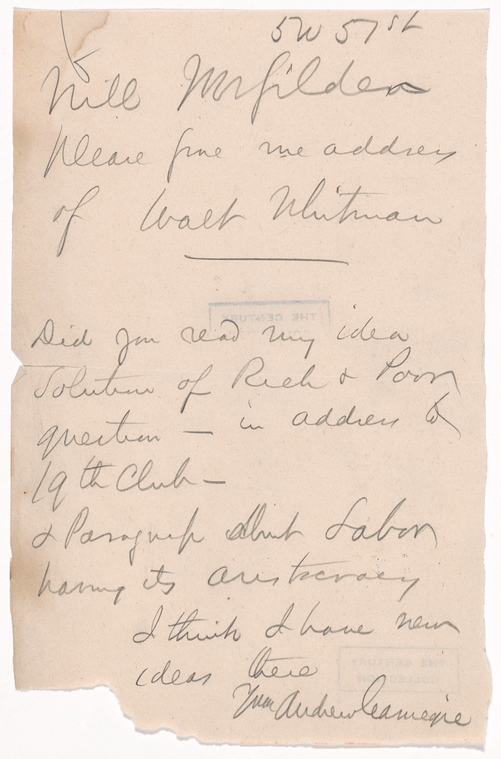 5 W 51st
Will Mr Gilder
please give me address
of Walt Whitman
THE CENTURY
Did you read my idea
Solution of Rich & Poor
question — in address to
19th Club —
& Paragraph about Labor
having its aristocracy
I think I have new
ideas there
THE CENTURY
COLLECTION
Andrew Carnegie